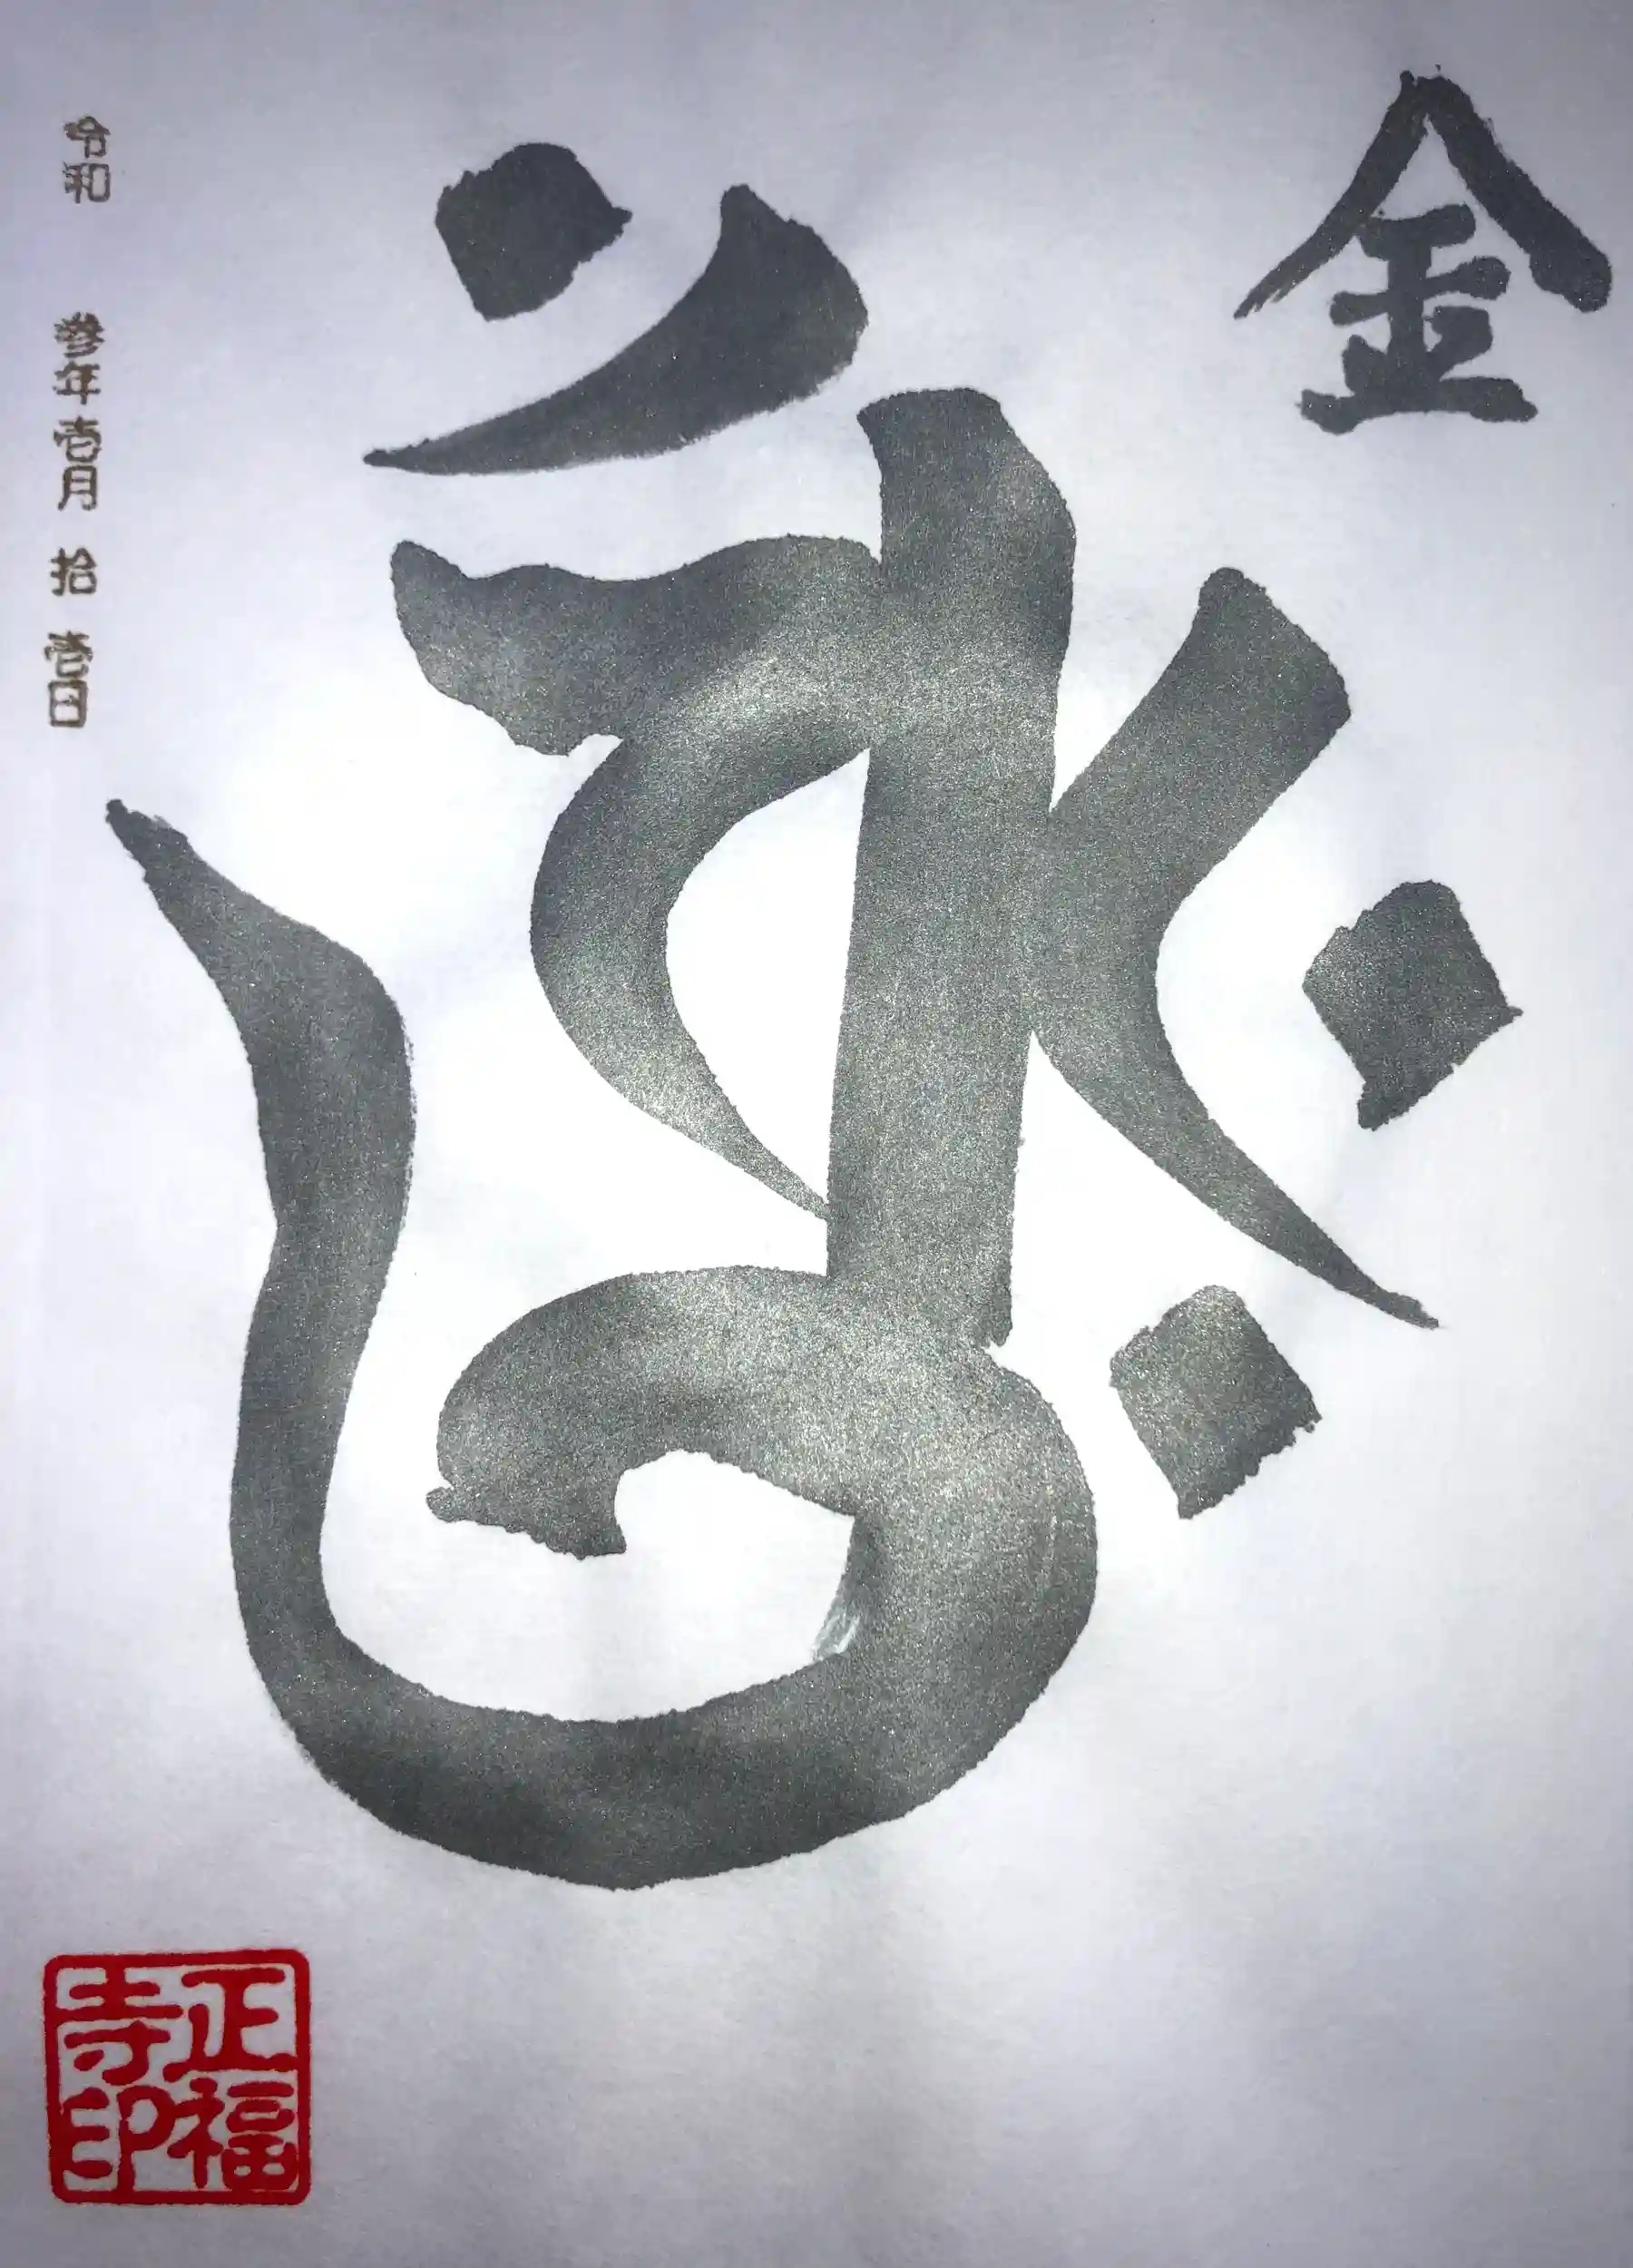 金
令和 參年壱月 拾壱日
正福
寺印